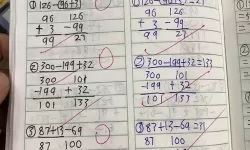 ① 126-(96+3)
96 126
+ 3 -99
99 27
② 300-199+32
300 101
-199 + 32
101 133
③ 87+13-69
87 100
① 126-(96+3)
96 126
+ 3 -99
99 27
② 300-199+32=133
300 101
-199 + 32
101 133
③ 87+13-69=31
87 100